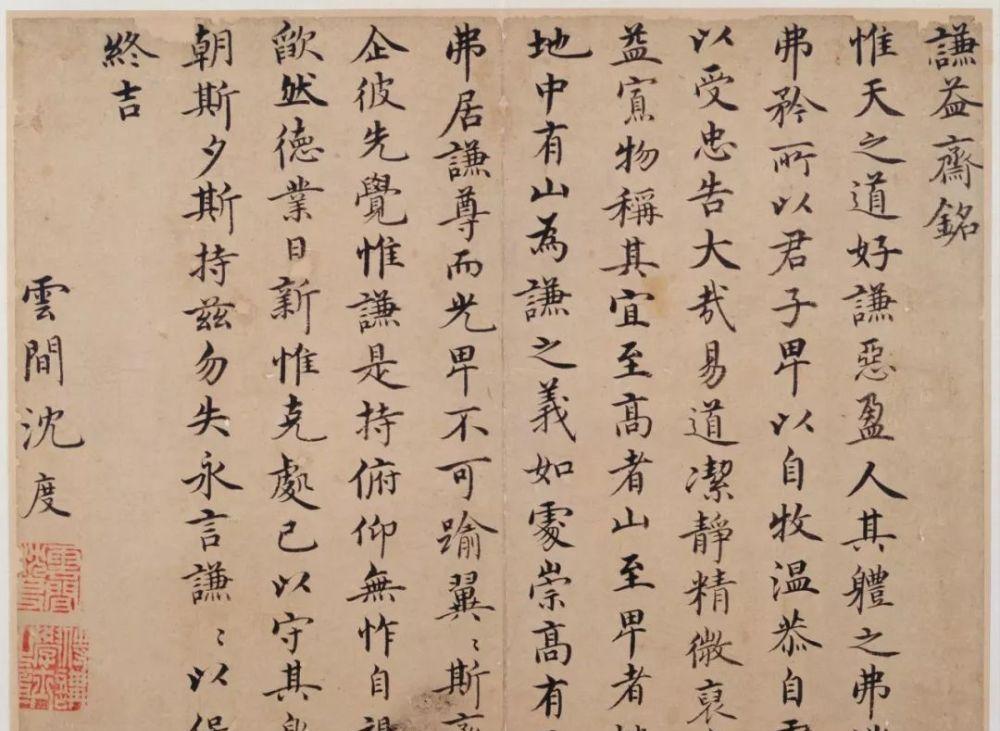 謙益齋銘
惟天之道好謙惡盈人其體之弗
弗矜所以君子卑以自牧温恭自
以受忠告大哉易道潔靜精微裒
益寡物稱其宜至高者山至卑者
地中有山為謙之義如處崇高有
弗居謙尊而光卑不可踰翼〻斯
企彼先覺惟謙是持俯仰無怍自視
欿然德業日新惟克處己以守其
朝斯夕斯持兹勿失永言謙〻以保
終吉
雲間沈度